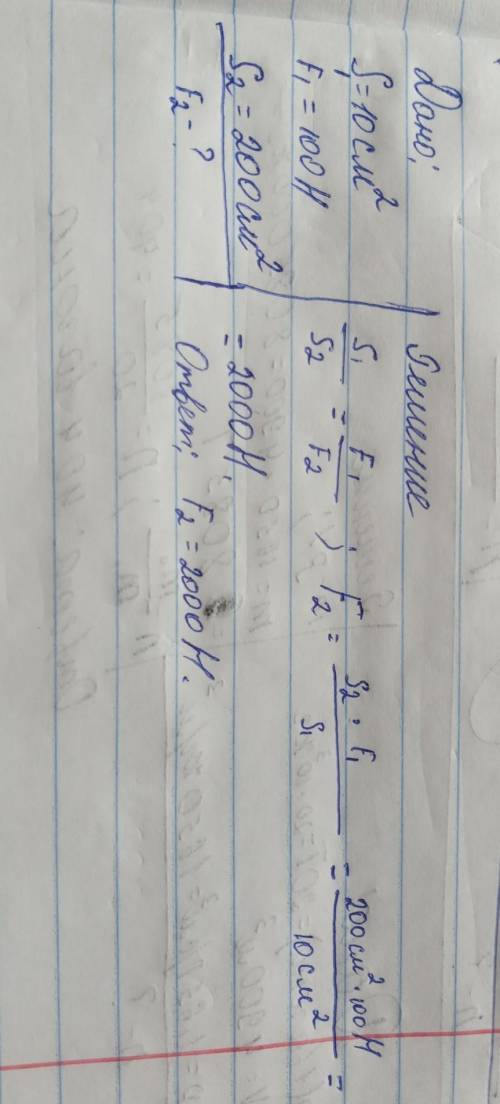 Дано:
S₁ = 10 см²
F₁ = 100 Н
S₂ = 200 см²
F₂ - ?
Решение
S₁/S₂ = F₁/F₂ ; F₂ = S₂ · F₁ / S₁ = 200 см² · 100 Н / 10 см² =
= 2000 Н.
Ответ: F₂ = 2000 Н.